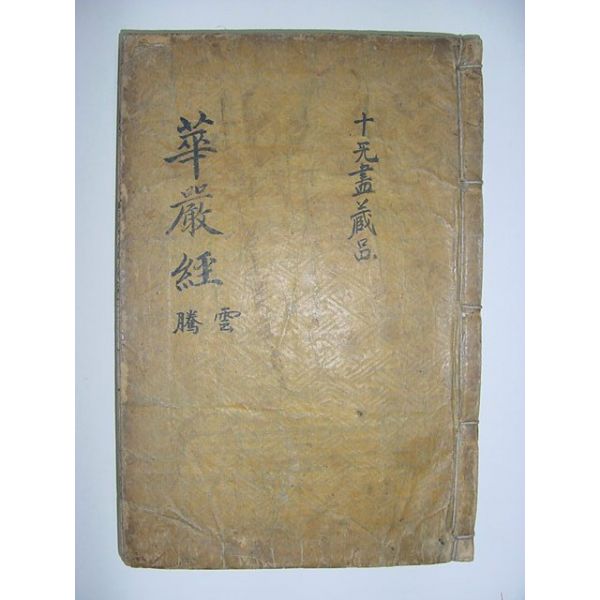 十无盡藏品
華嚴經
雲騰